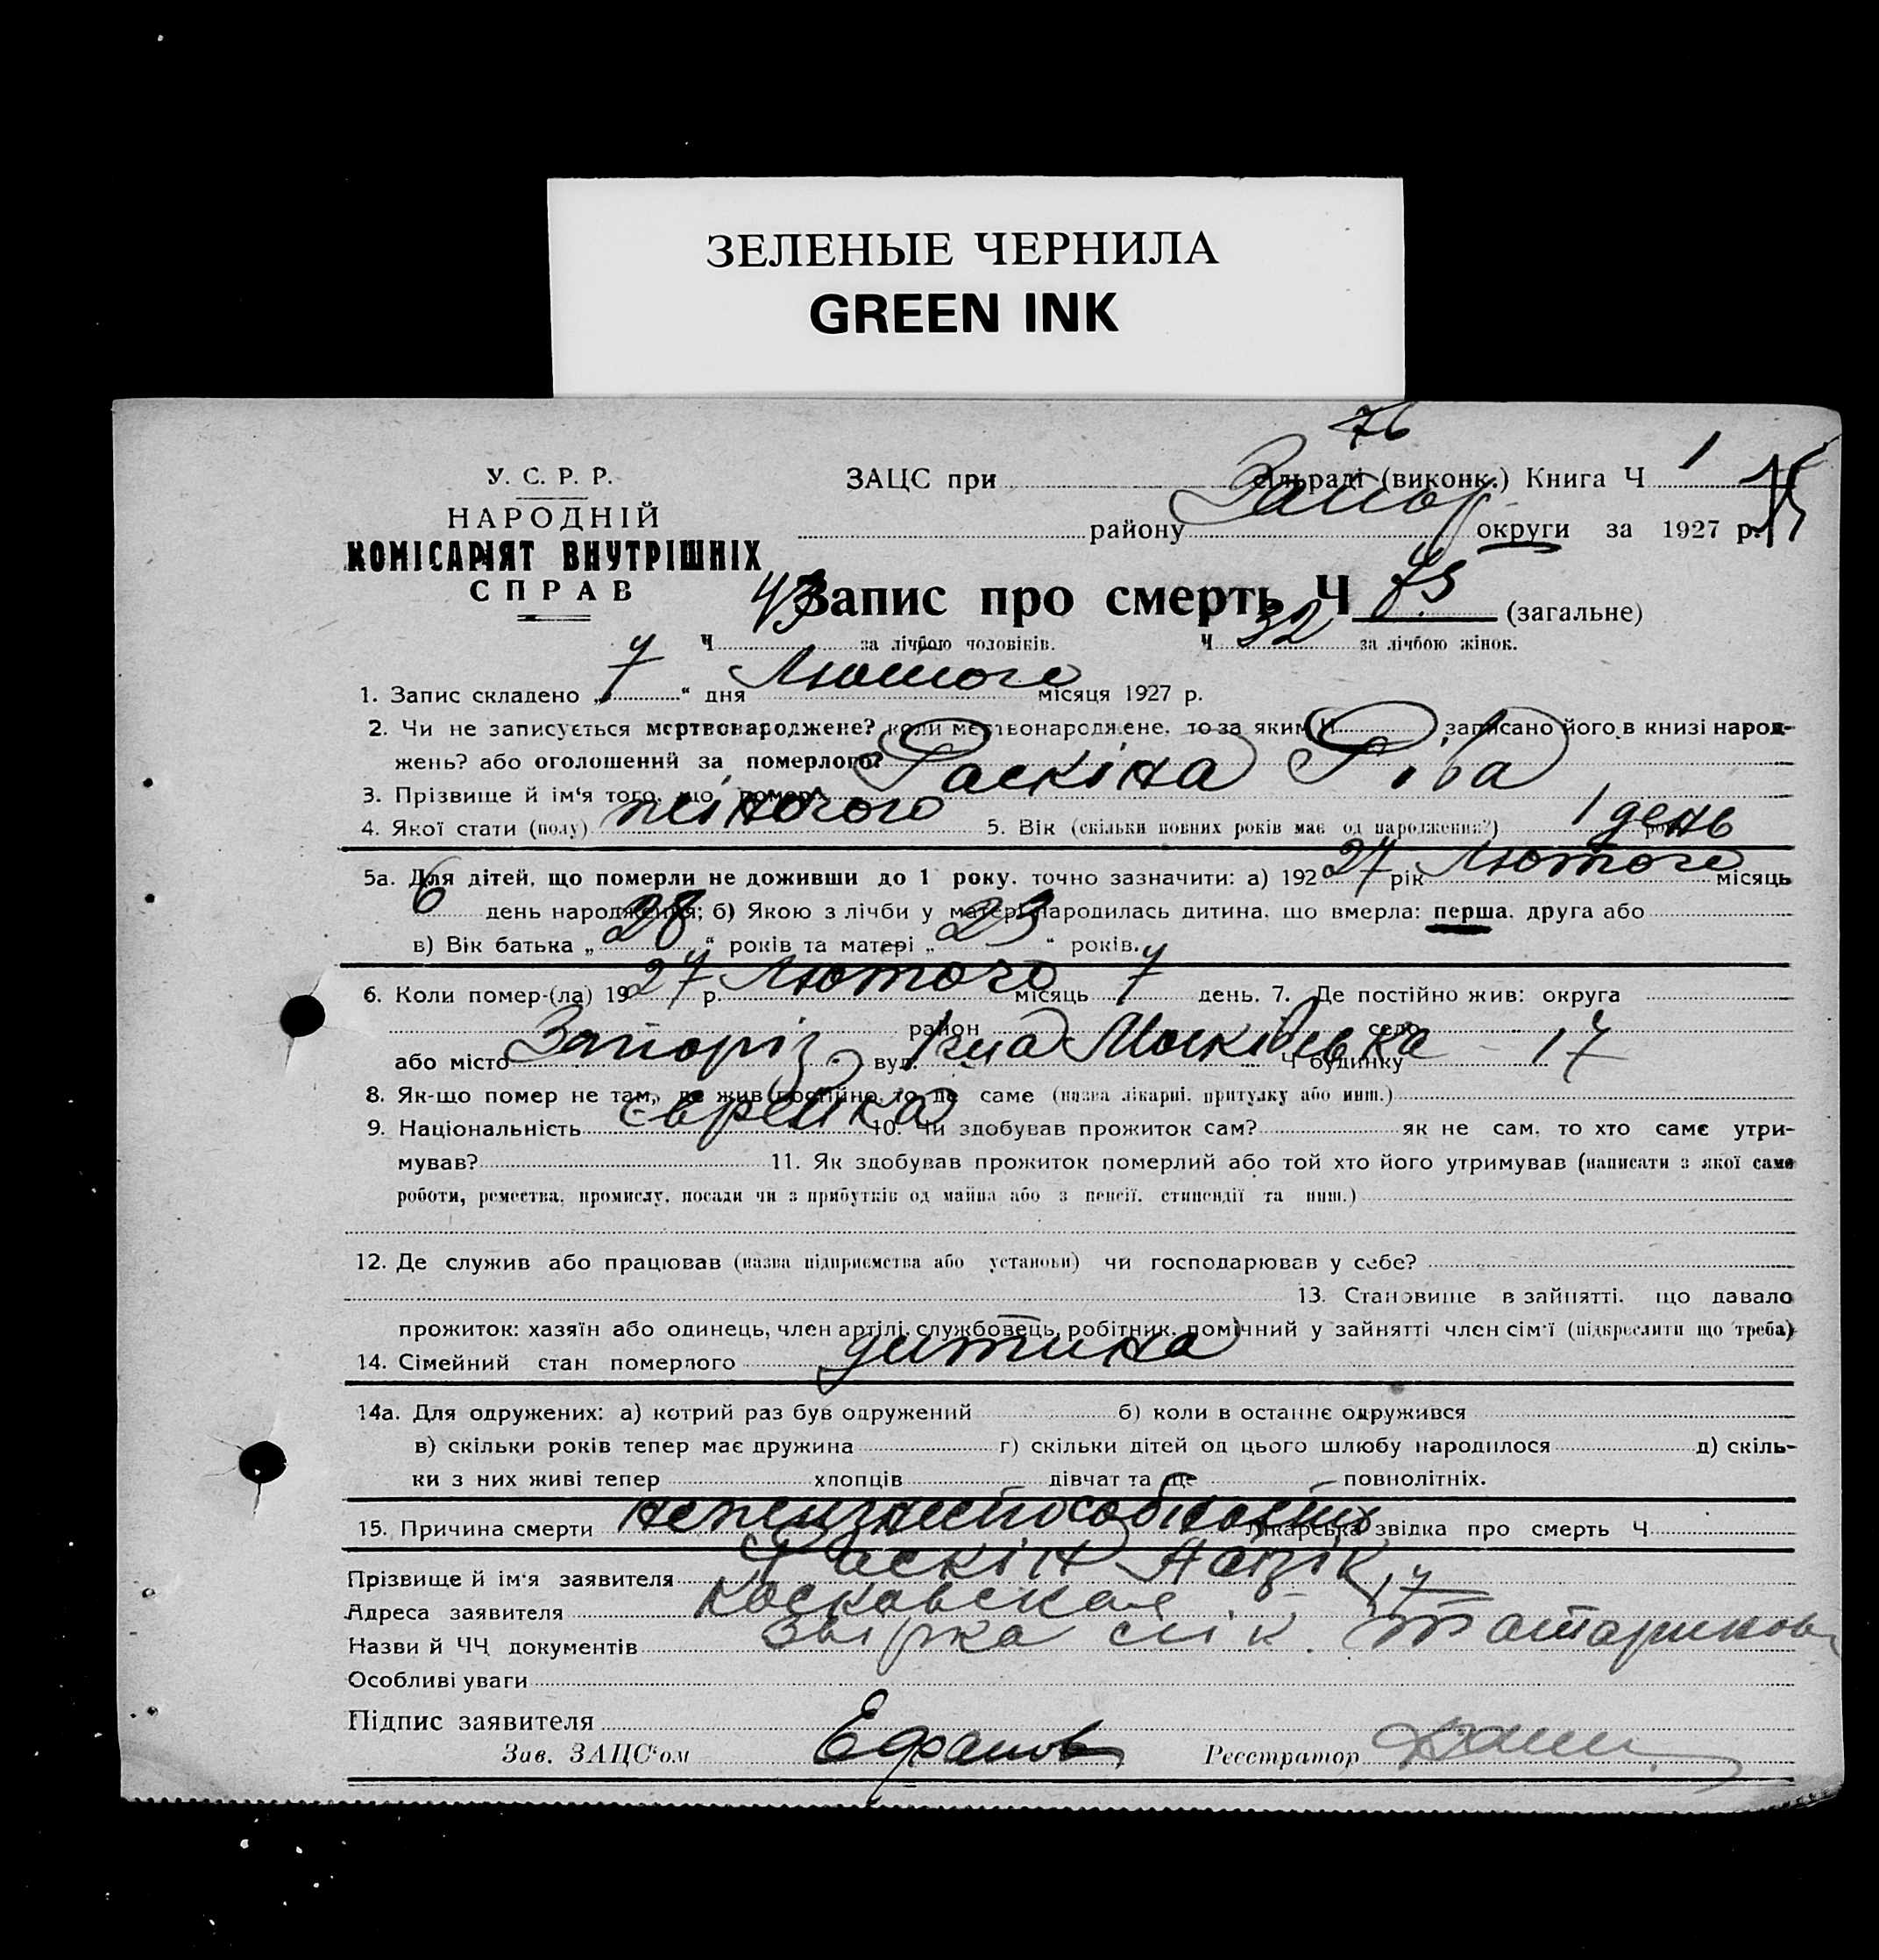 ЗЕЛЕНЫЕ ЧЕРНИЛА
GREEN INK
76
У. С. Р. Р.
НАРОДНІЙ
КОМІСАРІЯТ ВНУТРІШНІХ
СПРАВ
ЗАЦС при сільраді (виконк.) Книга Ч 1
району Запор округи за 1927 р.
Запис про смерть Ч 75 (загальне)
Ч 43 за лічбою чоловіків. Ч 32 за лічбою жінок.
1. Запис складено „ 7 “ дня Лютого місяця 1927 р.
2. Чи не записується мертвонароджене? коли мертвонароджене, то за яким Ч записано його в книзі народ-
жень? або оголошений за померлого?
3. Прізвище й ім'я того, що помер Раскіна Ріва
4. Якої стати (полу) жіночого 5. Вік (скільки повних років має од народження?) 1 день
5а. Для дітей, що померли не доживши до 1 року, точно зазначити: а) 1927 рік Лютого місяць
6 день народження; б) Якою з лічби у матері народилась дитина, що вмерла: перша, друга або
в) Вік батька „ 28 “ років та матері „ 23 “ років.
6. Коли помер-(ла) 1927 р. Лютого місяць 7 день. 7. Де постійно жив: округа
район село
або місто Запоріз вул. Московська Ч будинку 17
8. Як-що помер не там, де жив постійно, то де саме (назва лікарні, притулку або инш.)
9. Національність єврейка 10. Чи здобував прожиток сам? як не сам, то хто саме утри-
мував? 11. Як здобував прожиток померлий або той хто його утримував (написати з якої саме
роботи, ремества, промислу, посади чи з прибутків од майна або з пенсії, стипендії та инш.)
12. Де служив або працював (назва підприємства або установи) чи господарював у себе?
13. Становище в зайнятті, що давало
прожиток: хазяїн або одинець, член артілі, службовець, робітник, помічний у зайнятті член сім'ї (підкреслити що треба)
14. Сімейний стан померлого дитина
14а. Для одружених: а) котрий раз був одружений б) коли в останнє одружився
в) скільки років тепер має дружина г) скільки дітей од цього шлюбу народилося д) скіль-
ки з них живі тепер хлопців дівчат та ще повнолітніх.
15. Причина смерти Лікарська звідка про смерть Ч
Прізвище й ім'я заявителя Раскін
Адреса заявителя Московская 17
Назви й ЧЧ документів
Особливі уваги
Підпис заявителя
Зав. ЗАЦС'ом Ефанов Реєстратор